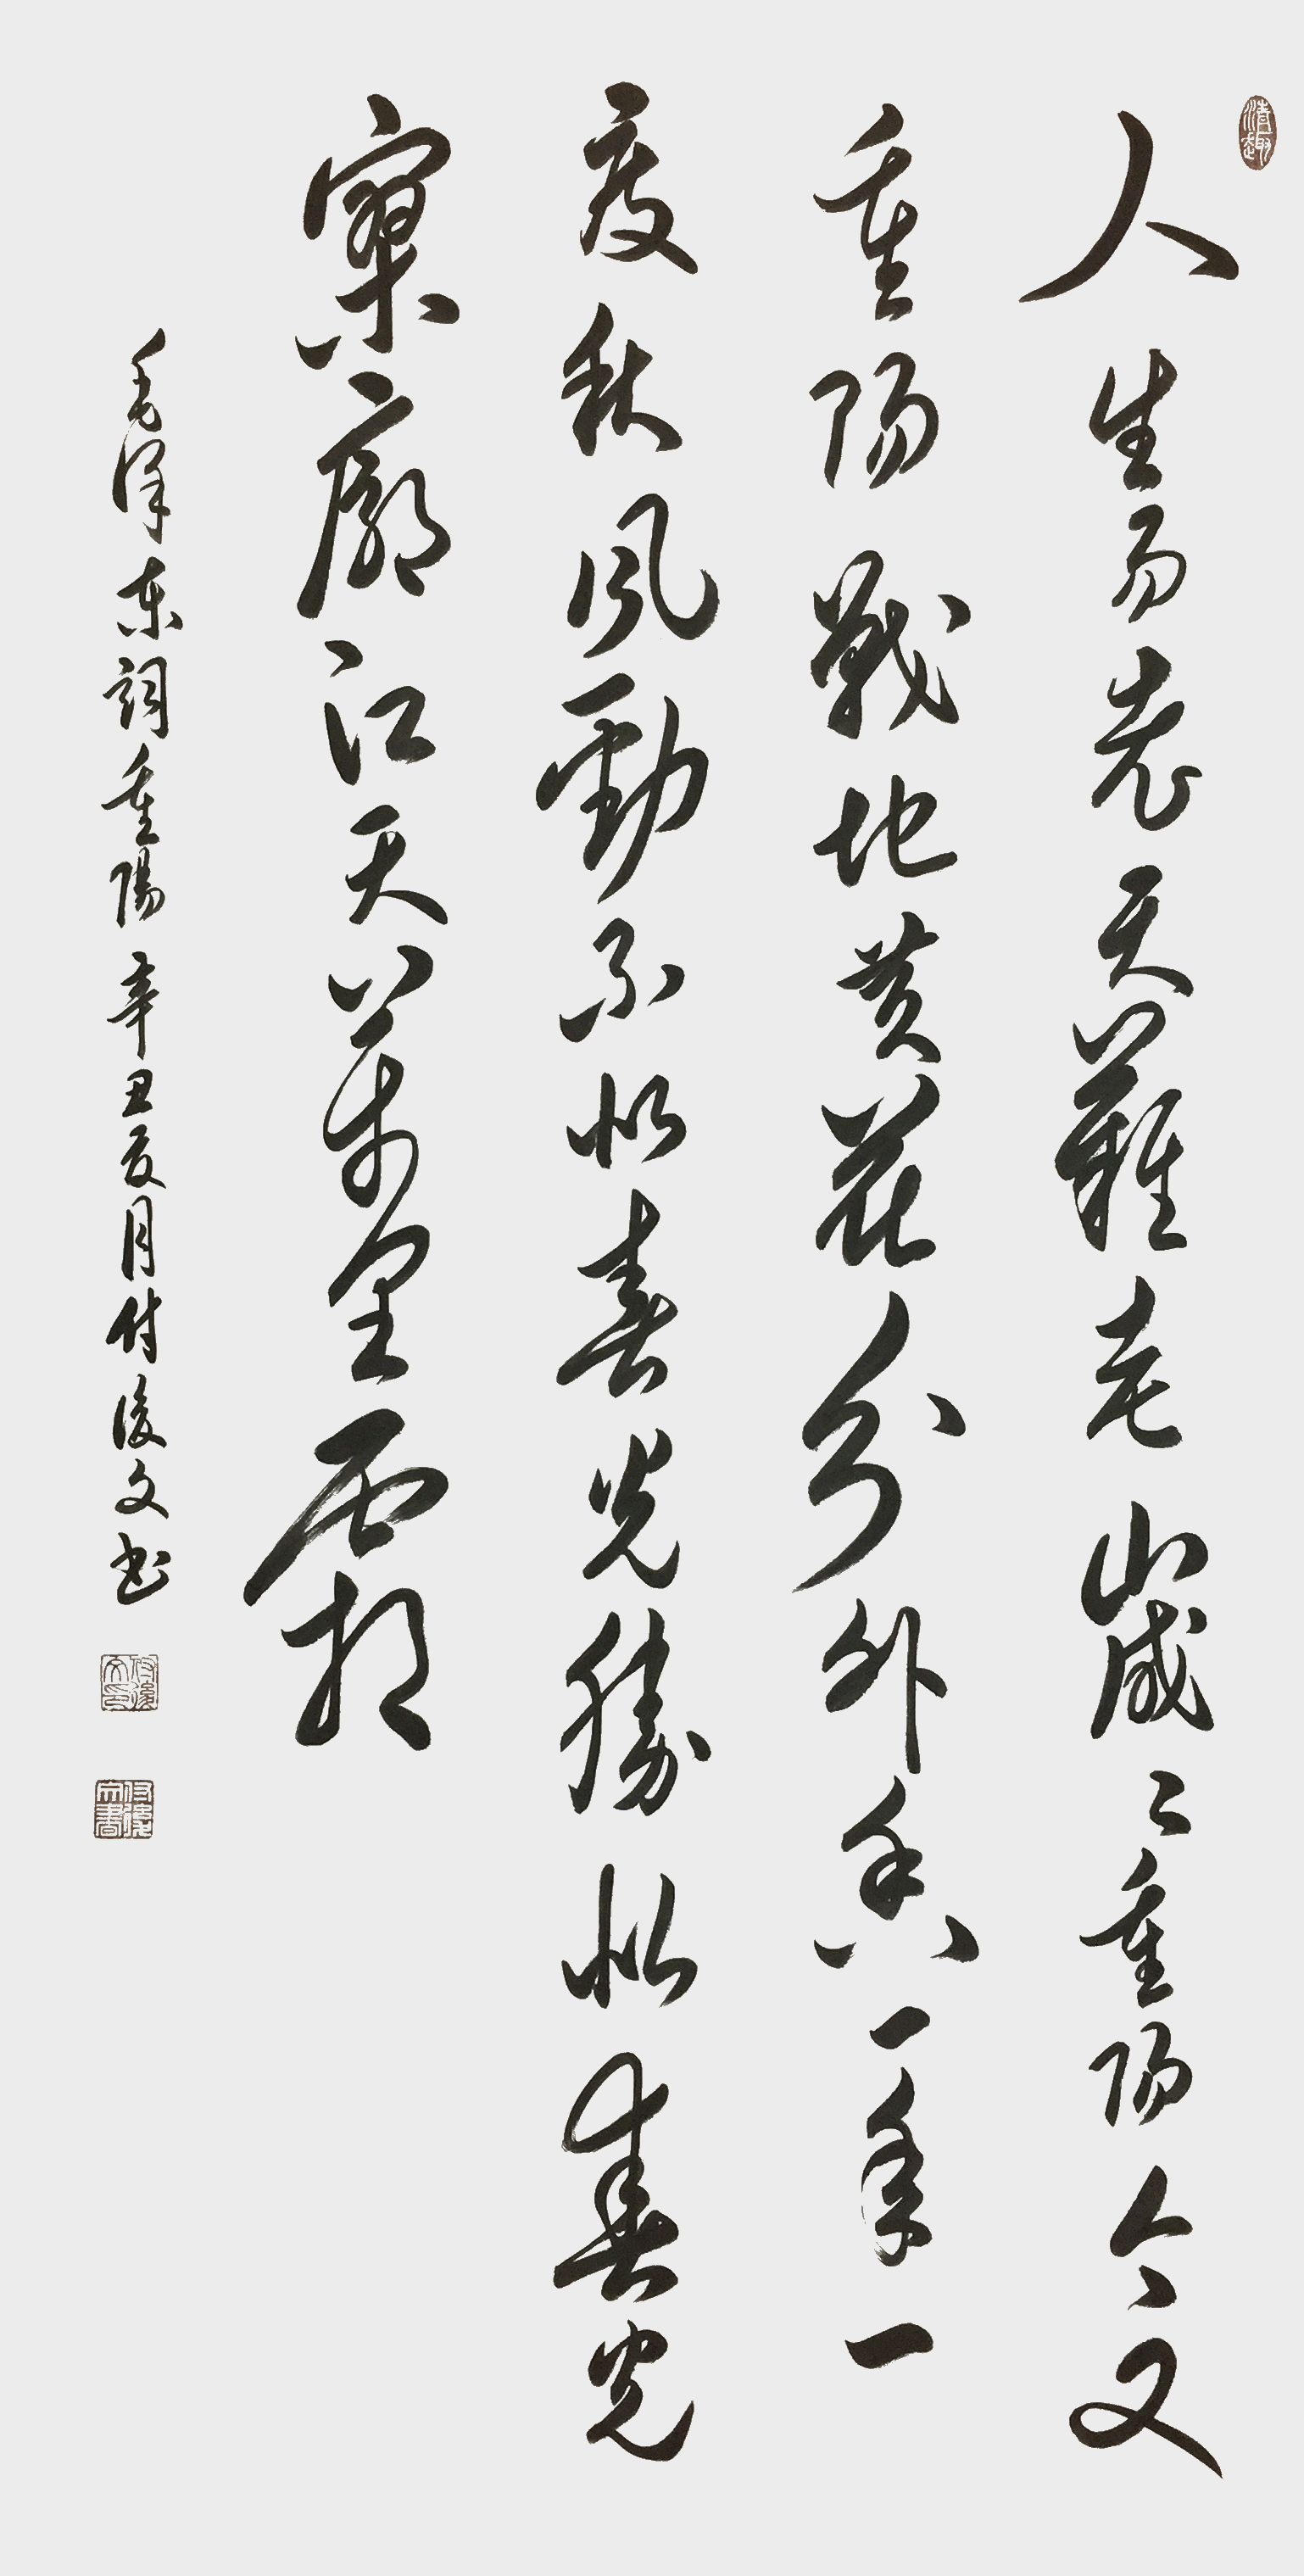 清趣
人生易老天難老歲々重陽今又
重陽戰地黃花分外香一年一
度秋風勁不似春光勝似春光
寥廓江天萬里霜
毛澤東詞重陽辛丑夏月付俊文书